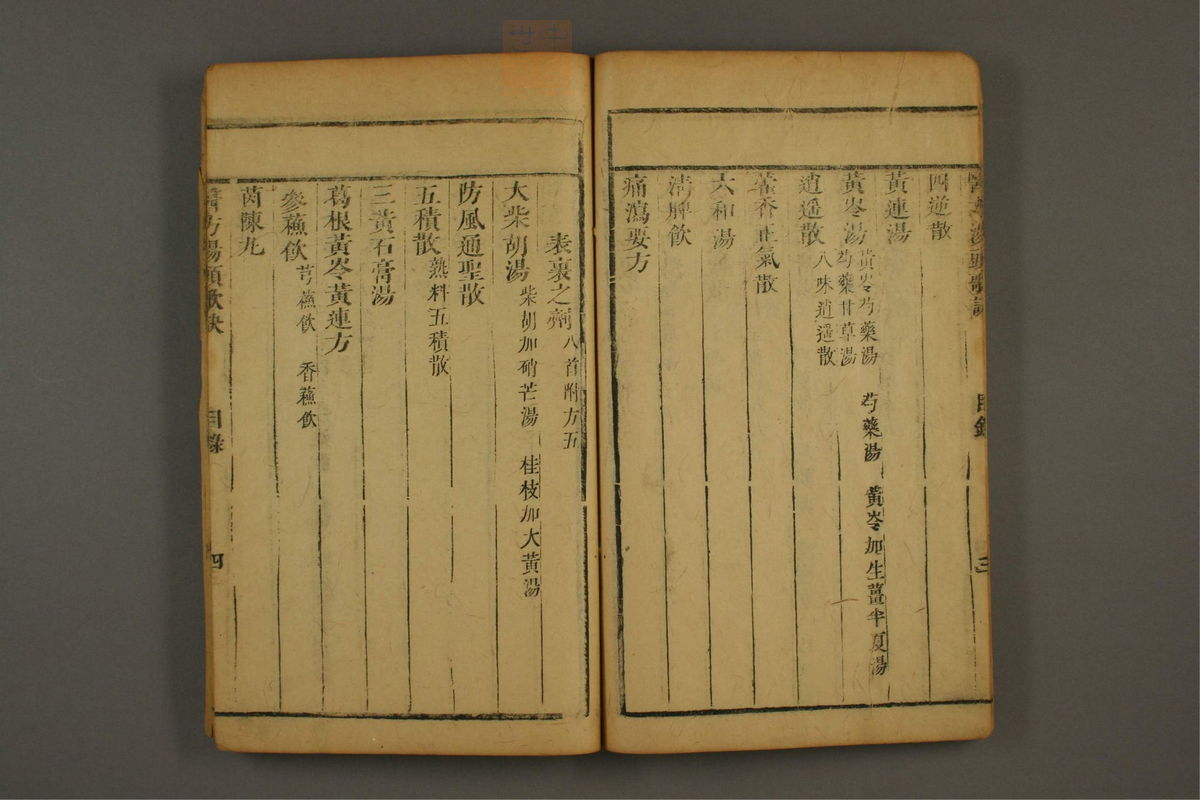 四逆散
黃連湯
黃岑湯 黃岑芍藥湯 芍藥湯 黃岑加生薑半夏湯
芍藥甘草湯
逍遥散 八味逍遥散
藿香正氣散
六和湯
清脾飲
痛瀉要方
目錄 三
表裏之劑 八首附方五
大柴胡湯 柴胡加硝芒湯 桂枝加大黃湯
防風通聖散
五積散 熟料五積散
三黃石膏湯
葛根黃岑黃連方
參蘓飲 芎蘓飲 香蘓飲
茵陳丸
醫方湯頭歌訣 目錄 四